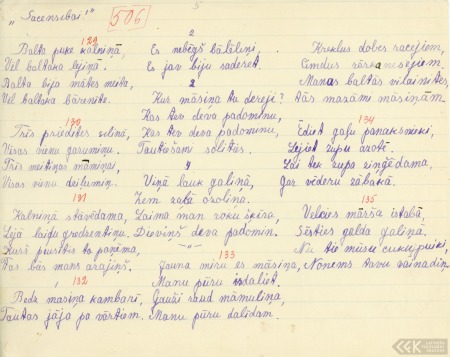 5
„Sacensībai!"
506
129
Balta puķe kalniņā,
Vēl baltaka lejiņā.
Balta bija mātes meita,
Vēl baltaka bārenīte.
130
Trīs priedītes silinā,
Visas vienu garumiņu.
Trīs meitiņas māmiņai,
Visas vienu
131
Kalniņā stāvēdama,
Lejā laidu gredzentiņu.
Kurš puisītis to paņēma,
Tas būs mans arājiņš.
132
Bēdz māsiņa kambarī,
Tautas jāja pa vārtiem.
2
Es nebēgš bāleliņ,
Es jau biju saderēt.
2
Kur māsiņa tu derēji?
Kas tev deva padomiņu,
Kas tev deva padomiņu,
Tautiešam solīties.
4
Viņā lauk galiņā,
Zem zaļā ozoliņa.
Laima man roku šķīra,
Dieviņš deva padomiņ.
-"-
133
Jauna miru es māsiņa,
Manu pūru izdaliet.
Gauži raud māmuliņa,
Manu pūru dalīdam.
Kreklus dabes
Cimdus
Manas baltās vilainītes,
tās mazām māsiņām.
134
Ēdiet gaļu panāksnieki,
Lejiet zupu avotē.
Lai tek zupa ziņģēdama,
Gar vēderu zābakā.
135
Velcies mārša istabā,
Sēsties galda galiņā.
Nu tie mūsu cukurpuiķi,
Noņems tavu vaiņadziņ.
LFK